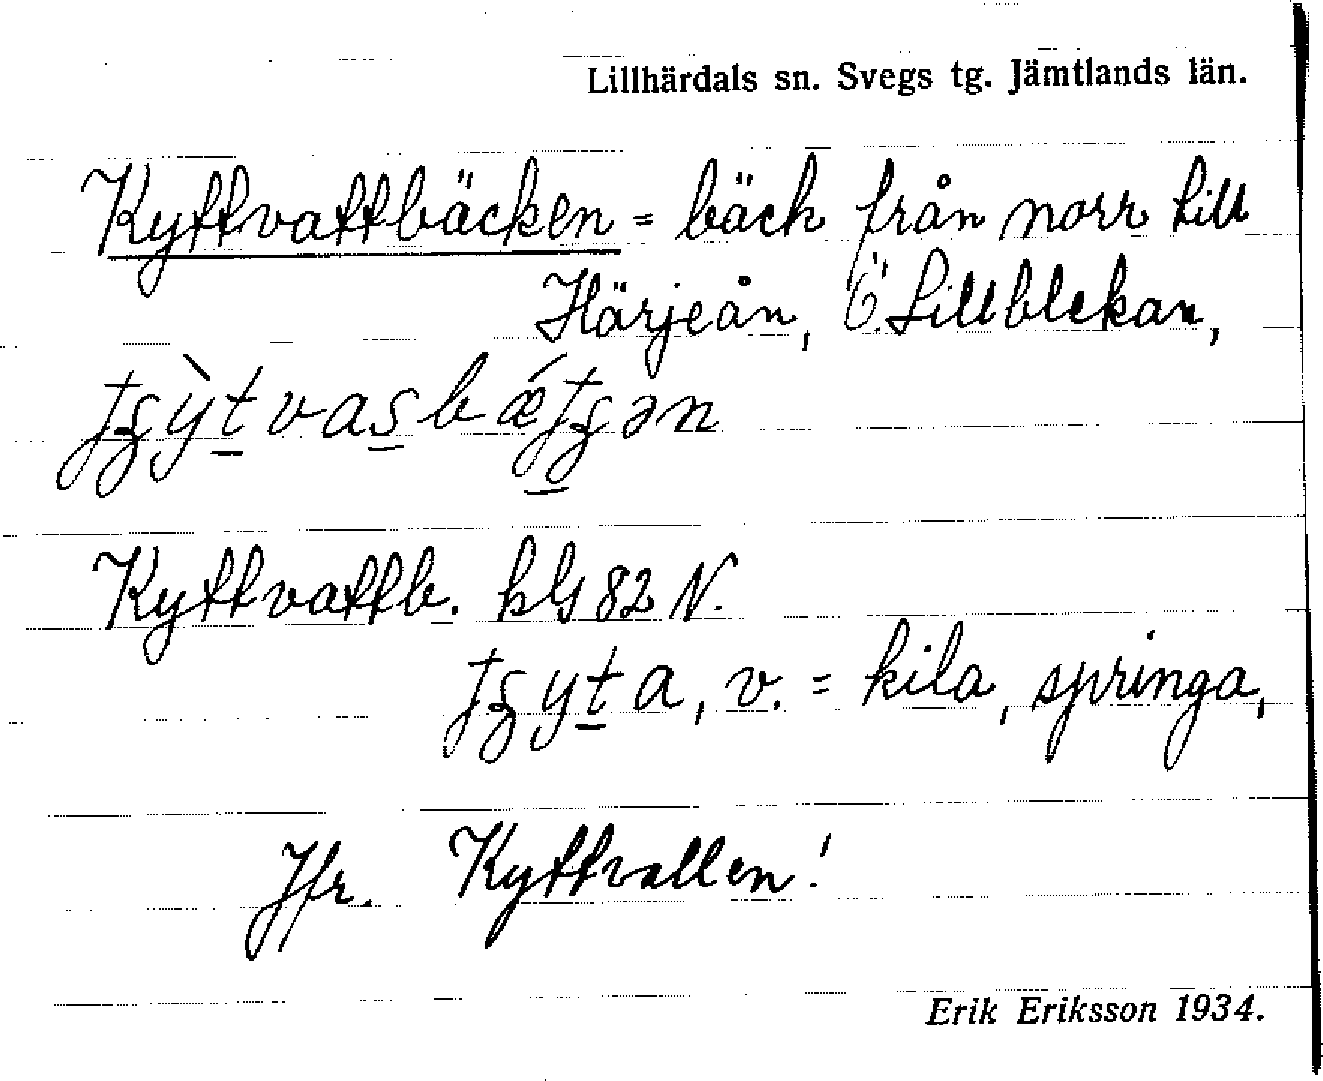 Lillhärdals sn. Svegs tg. Jämtlands län.
Kyttvattbäcken = bäck från norr till
Härjeån, Ö. Lillblekan,
Kyttvattb. kG 82 N.
v. = kila, springa,
Jfr. Kyttvallen!
Erik Eriksson 1934.